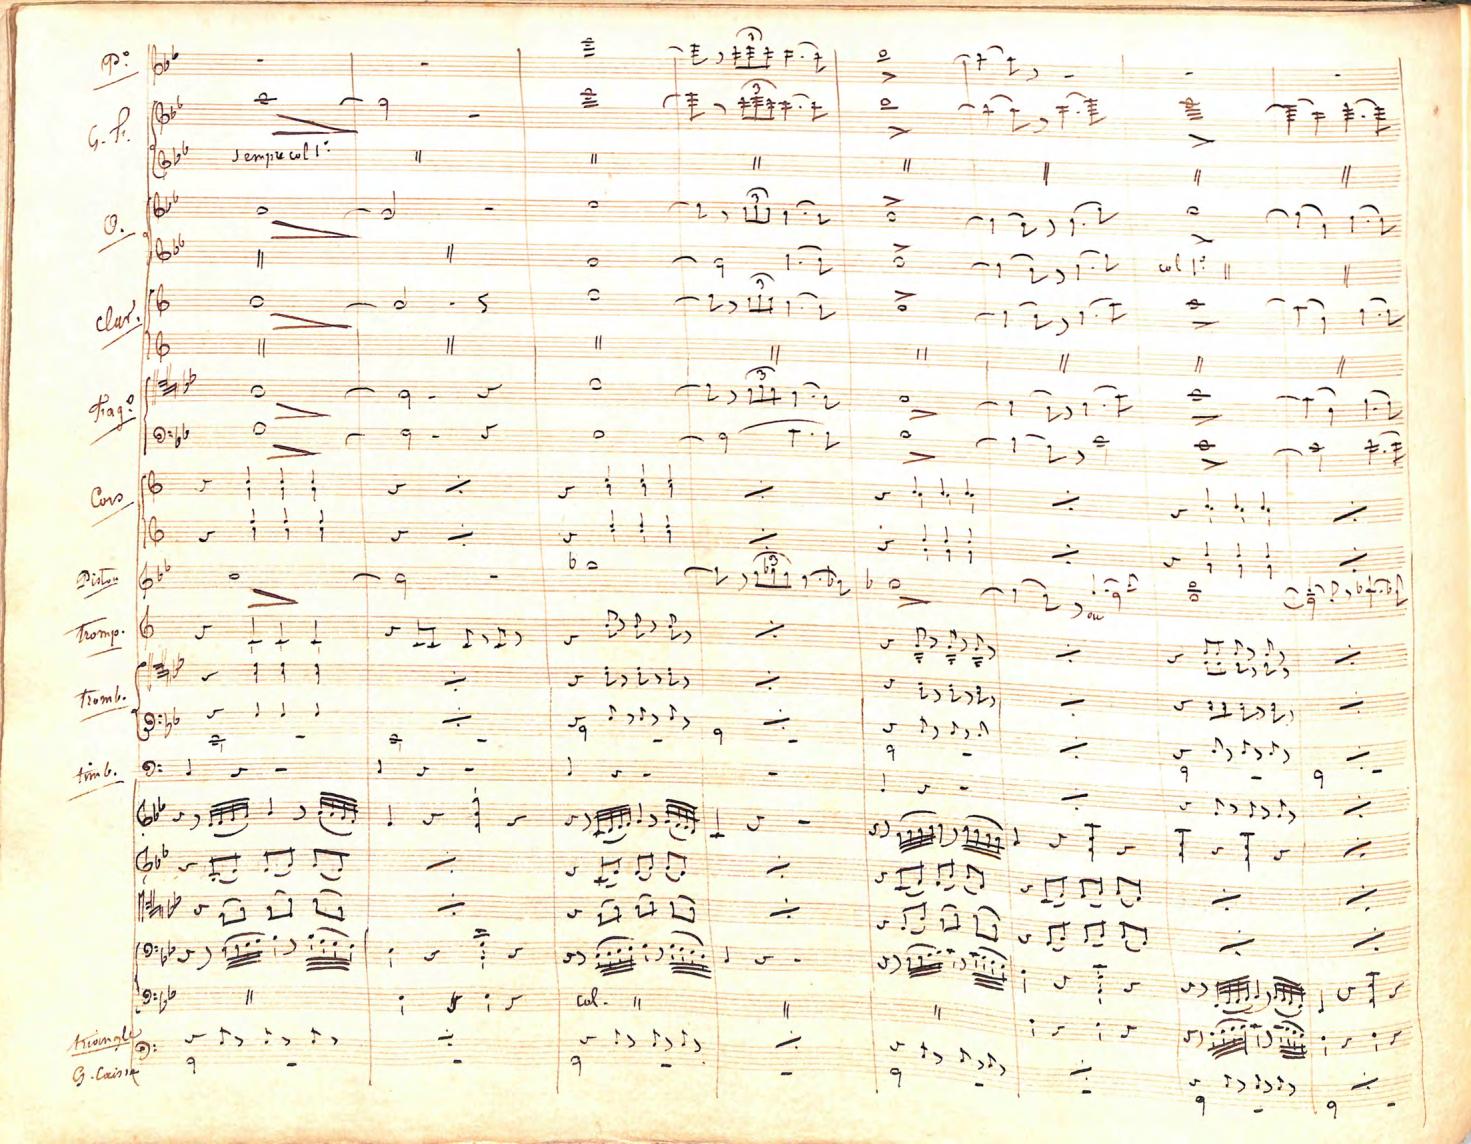 P.º
G. F.
sempre col 1º
O.
col 1º
Clar.
Fag.º
Cors
Piston
ou
Tromp.
Tromb.
timb.
col.
triangle
G. Caisse